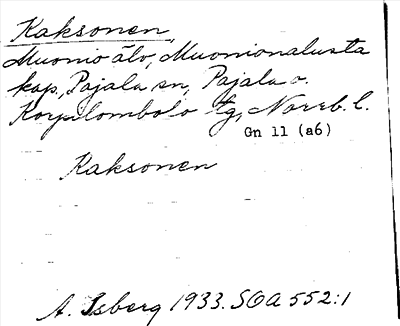 Kaksonen,
Muonio älv, Muonionalusta
kap., Pajala sn, Pajala o.
Korpilombolo tg, Norrb. l.
Gn 11 (a6)
Kaksonen
A. Isberg 1933. SOA 552:1